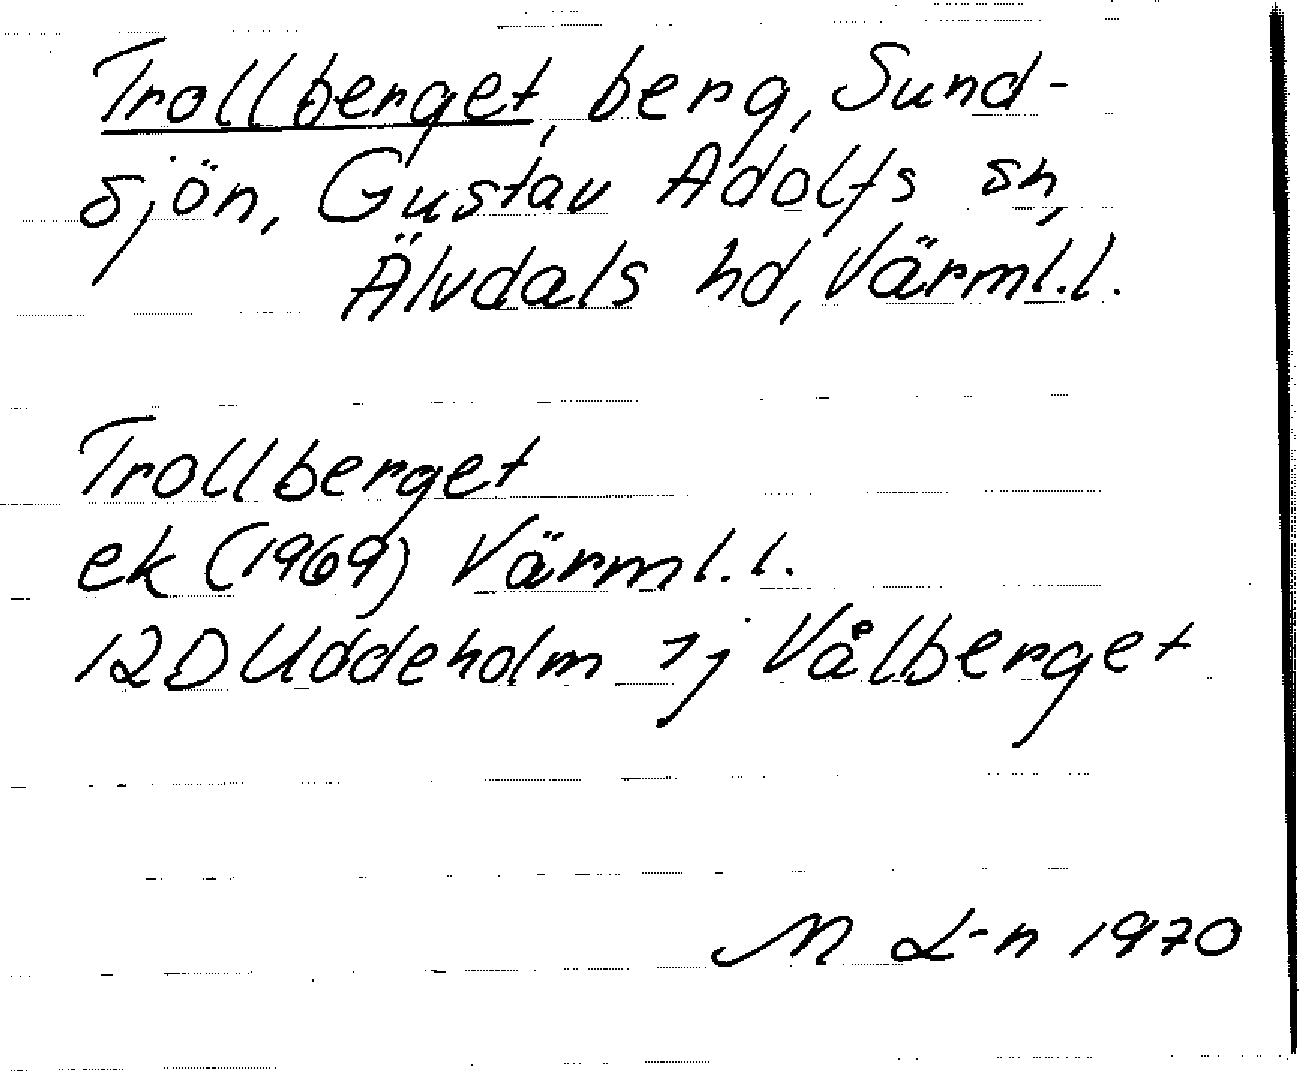 Trollberget, berg, Sund-
sjön, Gustav Adolfs sn,
Älvdals hd, Värml.l.
Trollberget
ek (1969) Värml.l.
12D Uddeholm 7j Vålberget
M L-n 1970